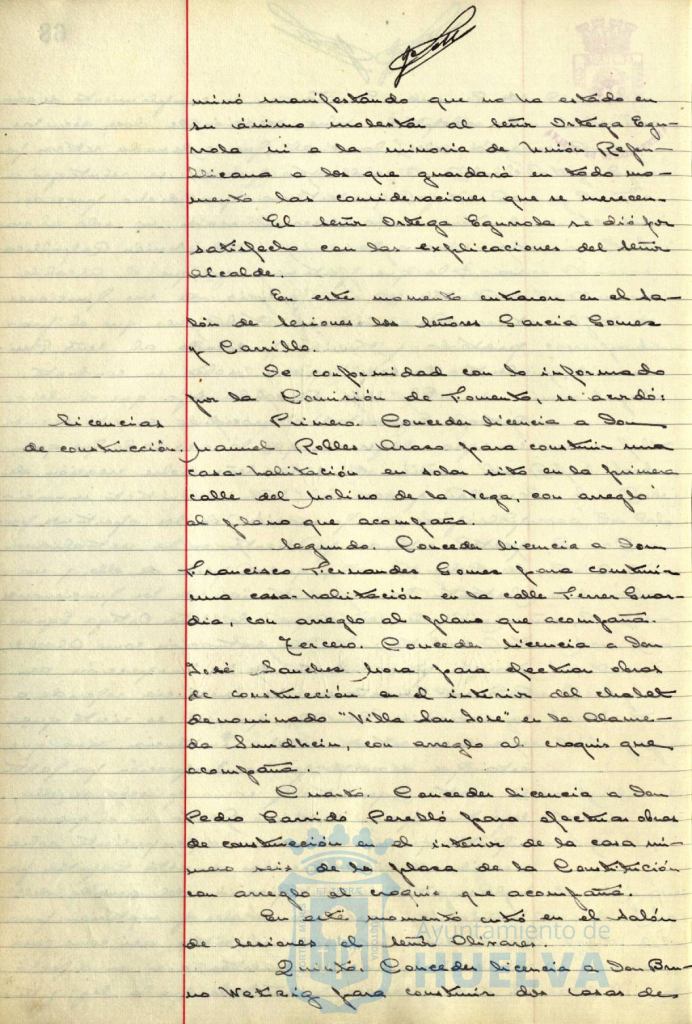 minó manifestando que no ha estado en
su ánimo molestar al Señor Ortega Egu-
rrola ni a la minoria de Unión Repu-
blicana a los que guardará en todo mo-
mento las consideraciones que se merecen.
El Señor Ortega Egurrola se dió por
satisfecho con las explicaciones del Señor
Alcalde.
En este momento entraron en el Sa-
lón de Sesiones los Señores Garcia Gomez
y Carrillo.
De conformidad con lo informado
por la Comisión de Fomento, se acordó:
Licencias
de construcción.
Primero. Conceder licencia a Don
Manuel Robles para construir una
casa-habitación en solar sito en la primera
calle del Molino de la Vega, con arreglo
al plano que acompaña.
Segundo. Conceder licencia a Don
Francisco Fernandez Gomez para construir
una casa-habitación en la calle Ferrer Guar-
dia, con arreglo al plano que acompaña.
Tercero. Conceder licencia a Don
José Sanchez Mora para efectuar obras
de construcción en el interior del chalet
denominado "Villa San José" en la Alame-
da Sundhein, con arreglo al croquis que
acompaña.
Cuarto. Conceder licencia a Don
Pedro Garrido Perelló para efectuar obras
de construcción en el interior de la casa nú-
mero seis de la plaza de la Constitución
con arreglo al croquis que acompaña.
En este momento entró en el Salón
de Sesiones el Señor Olivares.
Quinto. Conceder licencia a Don Bru-
no para construir dos casas de
Ayuntamiento de
HUELVA